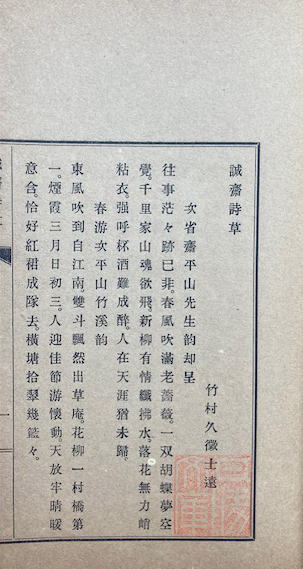 誠齋詩草
竹村久徵士遠
次省齋平山先生韵却呈
往事茫々跡已非。春風吹滿老薔薇。一双胡蝶夢空
覺。千里家山魂欲飛。新柳有情纖拂水。落花無力峭
粘衣。强呼杯酒難成醉。人在天涯猶未歸。
春游次平山竹溪韵
東風吹到自江南。雙斗飄然出草庵。花柳一村橋第
一。煙霞三月日初三。人迎佳節游懷動。天放牢晴暖
意含。恰好紅裙成隊去。橫塘拾翠幾籃々。